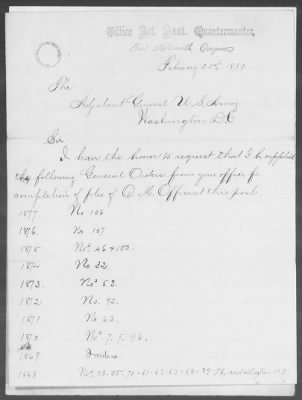 Office Act. Asst. Quartermaster,
Fort Klamath Oregon
February 25th 1880.
The
Adjutant General U.S. Army
Washington D.C.
Sir
I have the honor to request that I be supplied
the following General Orders from your office for
completion of files of Q. M. Office at this post
1877 No 106
1876 No 107
1875 Nos 46 & 103.
1874 No 32.
1873. Nos 53.
1872 No. 92.
1871 No 63.
1870 Nos 7. 9. 96.
1869 Index
1868 Nos